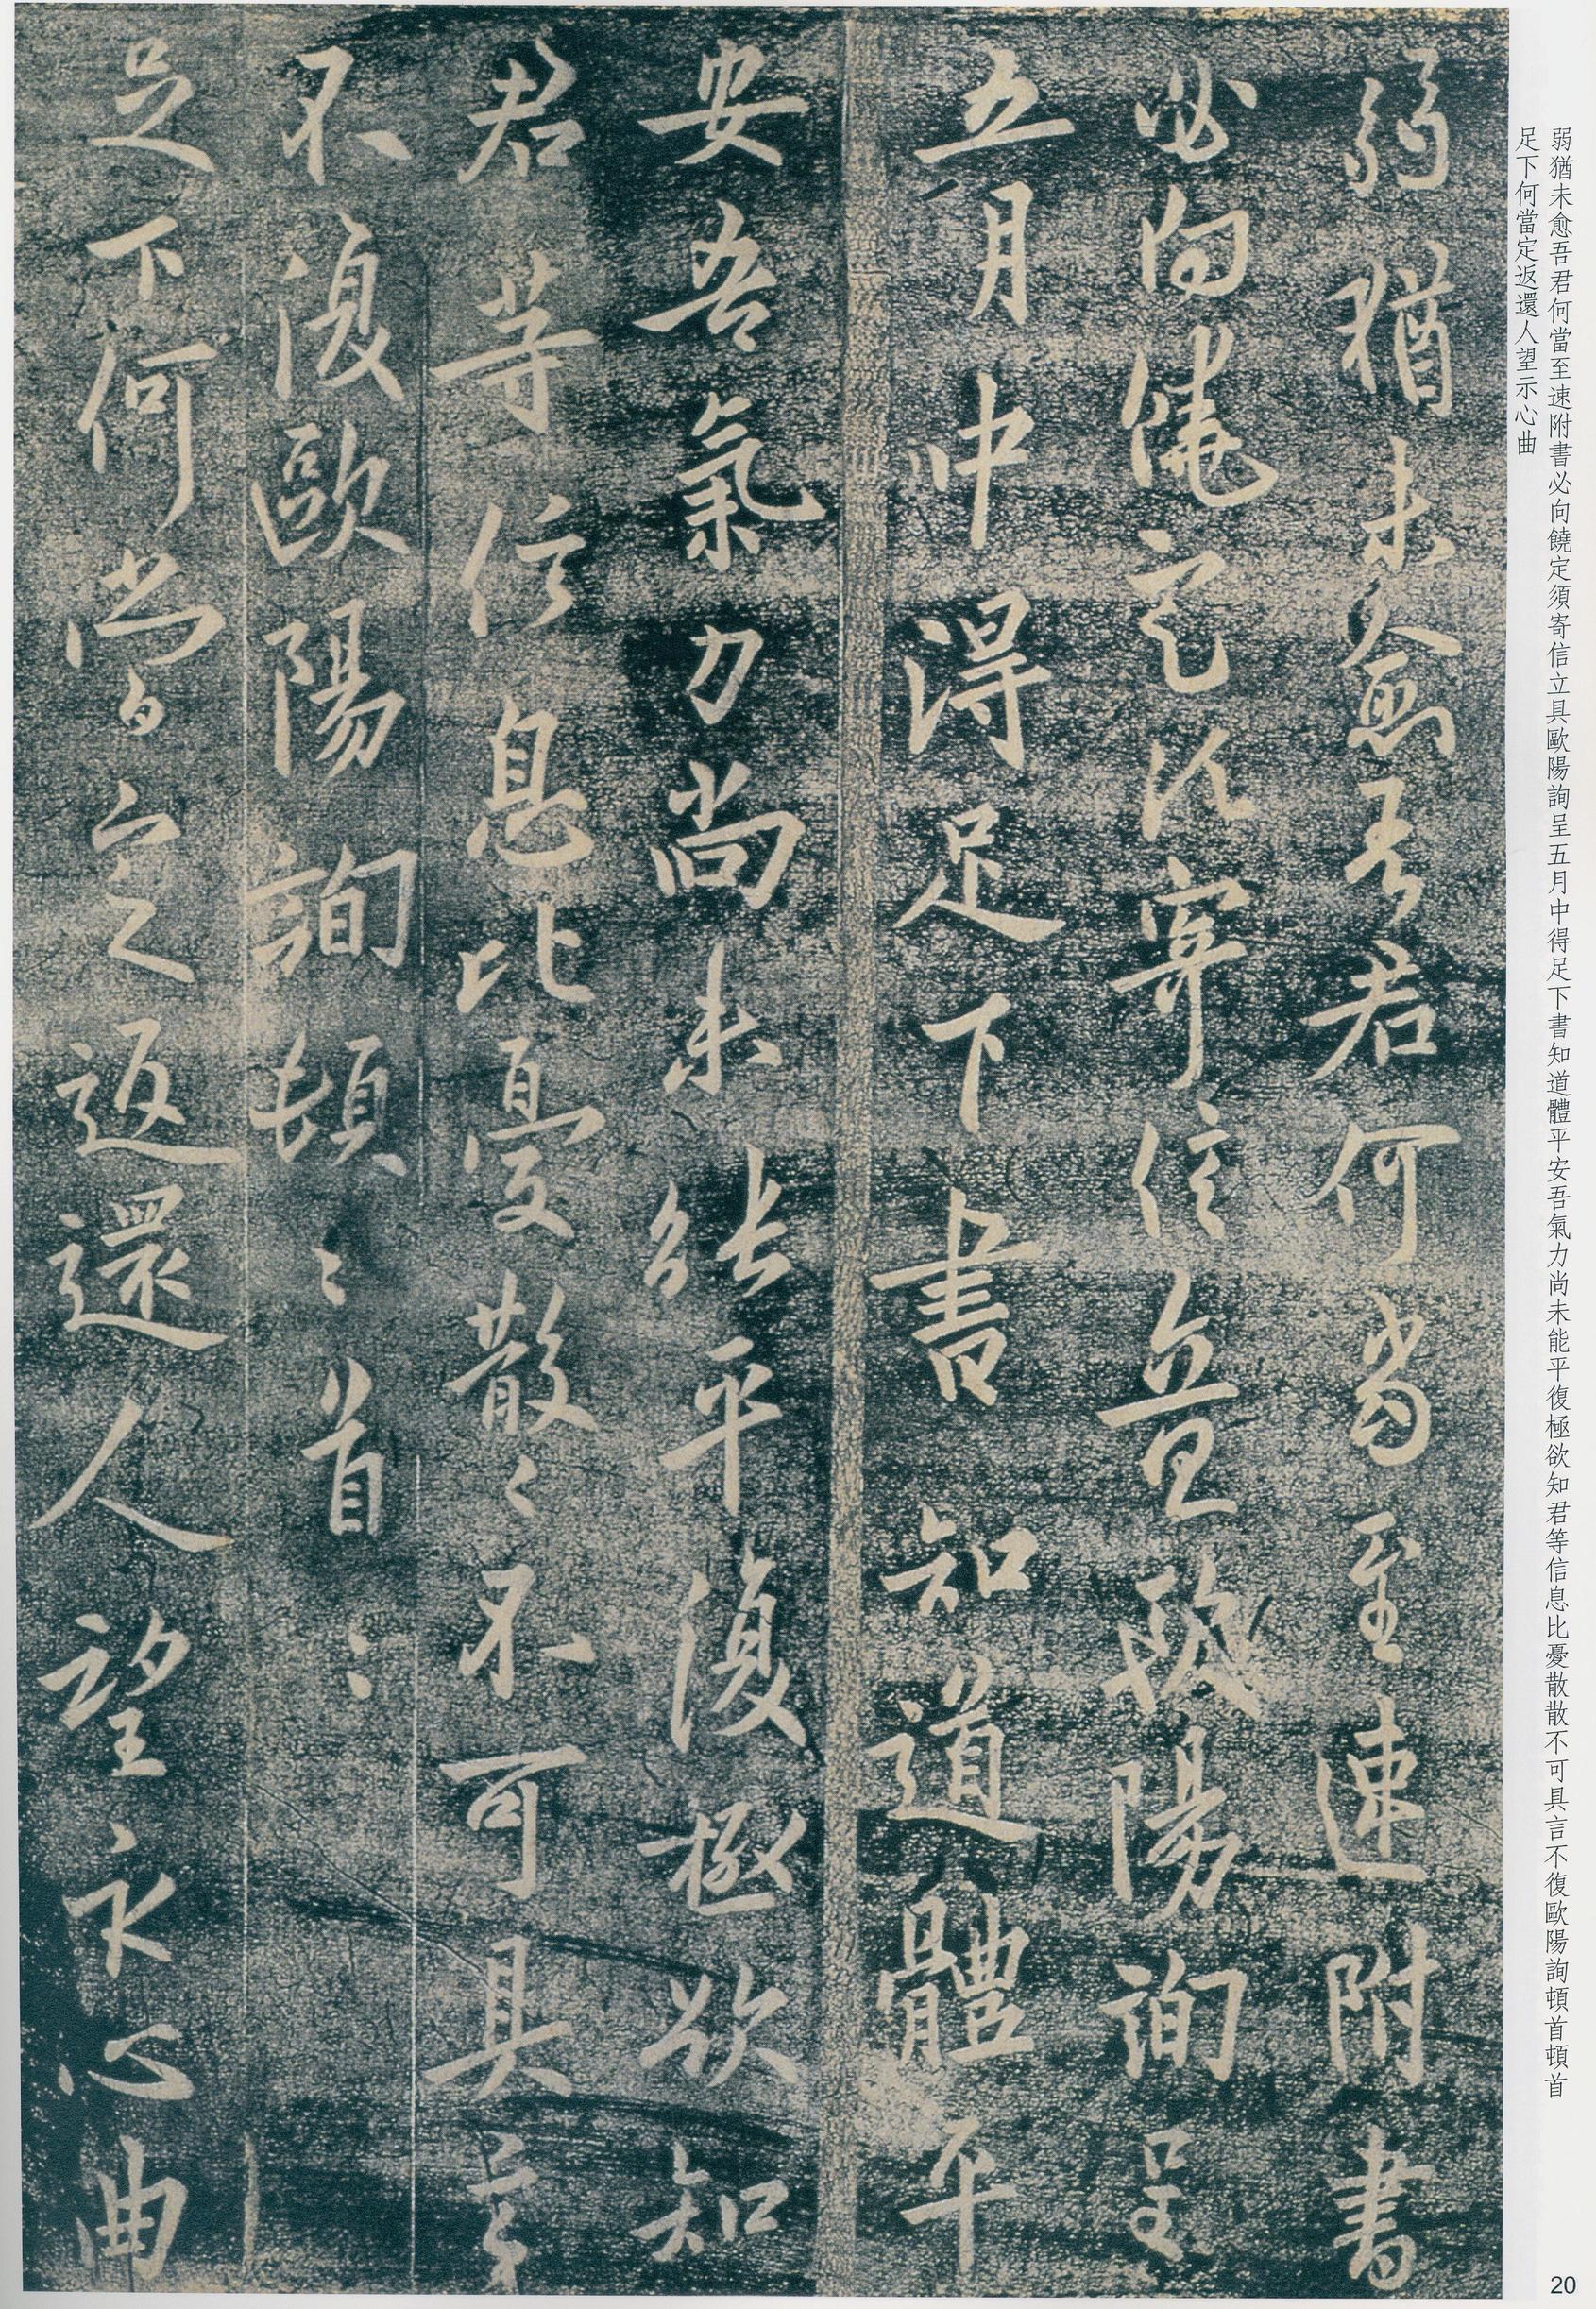 弱猶未愈吾君何當至速附書
必向饒定須寄信立具歐陽詢呈
五月中得足下書知道體平
安吾氣力尚未能平復極欲知
君等信息比憂散〻不可具言
不復歐陽詢頓〻首〻
足下何當定返還人望示心曲
弱猶未愈吾君何當至速附書必向饒定須寄信立具歐陽詢呈五月中得足下書知道體平安吾氣力尚未能平復極欲知君等信息比憂散散不可具言不復歐陽詢頓首頓首
足下何當定返還人望示心曲
20